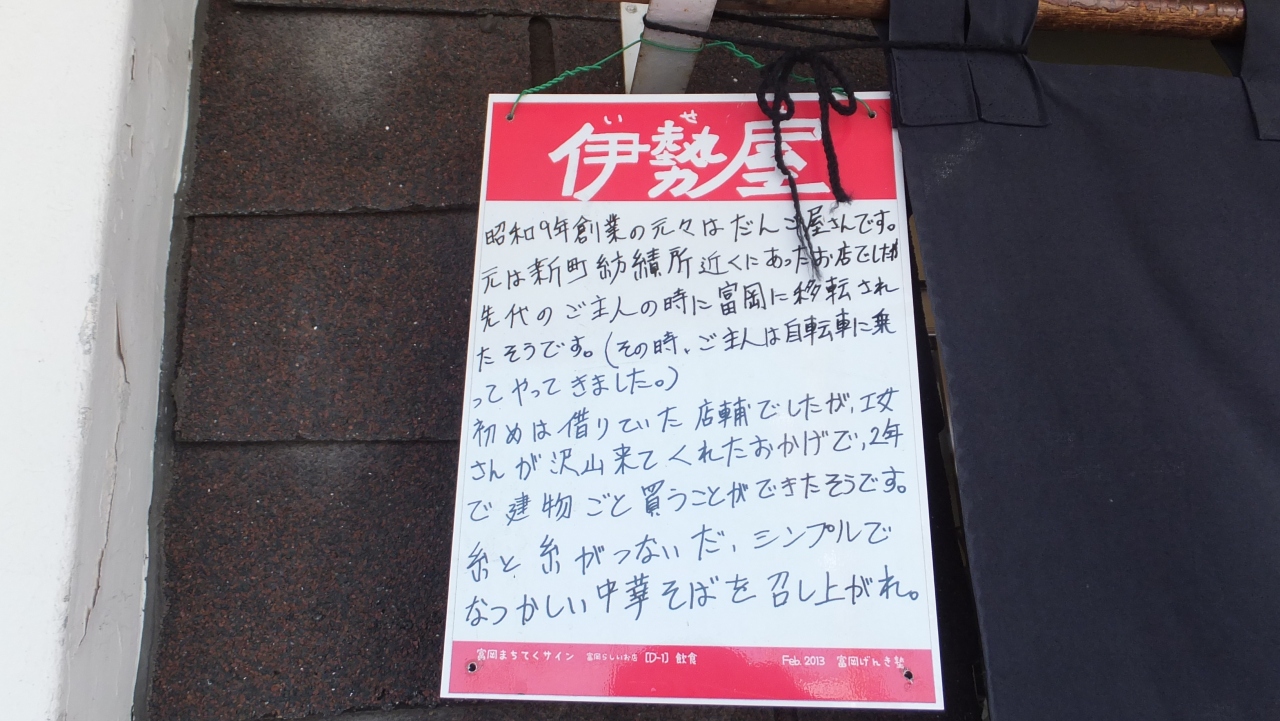 いせ
伊勢屋
昭和9年創業の元々はだんご屋さんです。
元は新町紡績所近くにあったお店でしたが
先代のご主人の時に富岡に移転され
たそうです。(その時、ご主人は自転車に乗
ってやってきました。)
初めは借りていた店輔でしたが、工女
さんが沢山来てくれたおかげで、2年
で建物ごと買うことができたそうです。
糸と糸がつないだ、シンプルで
なつかしい中華そばを召し上がれ。
富岡まちてくサイン 富岡らしいお店 [D-1] 飲食 Feb. 2013 富岡げんき塾